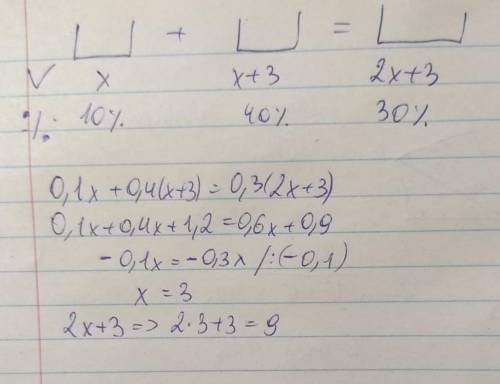 + =
V x x+3 2x+3
%: 10% 40% 30%
0,1x+0,4(x+3)=0,3(2x+3)
0,1x+0,4x+1,2=0,6x+0,9
-0,1x=-0,3x /:(-0,1)
x=3
2x+3=>2·3+3=9